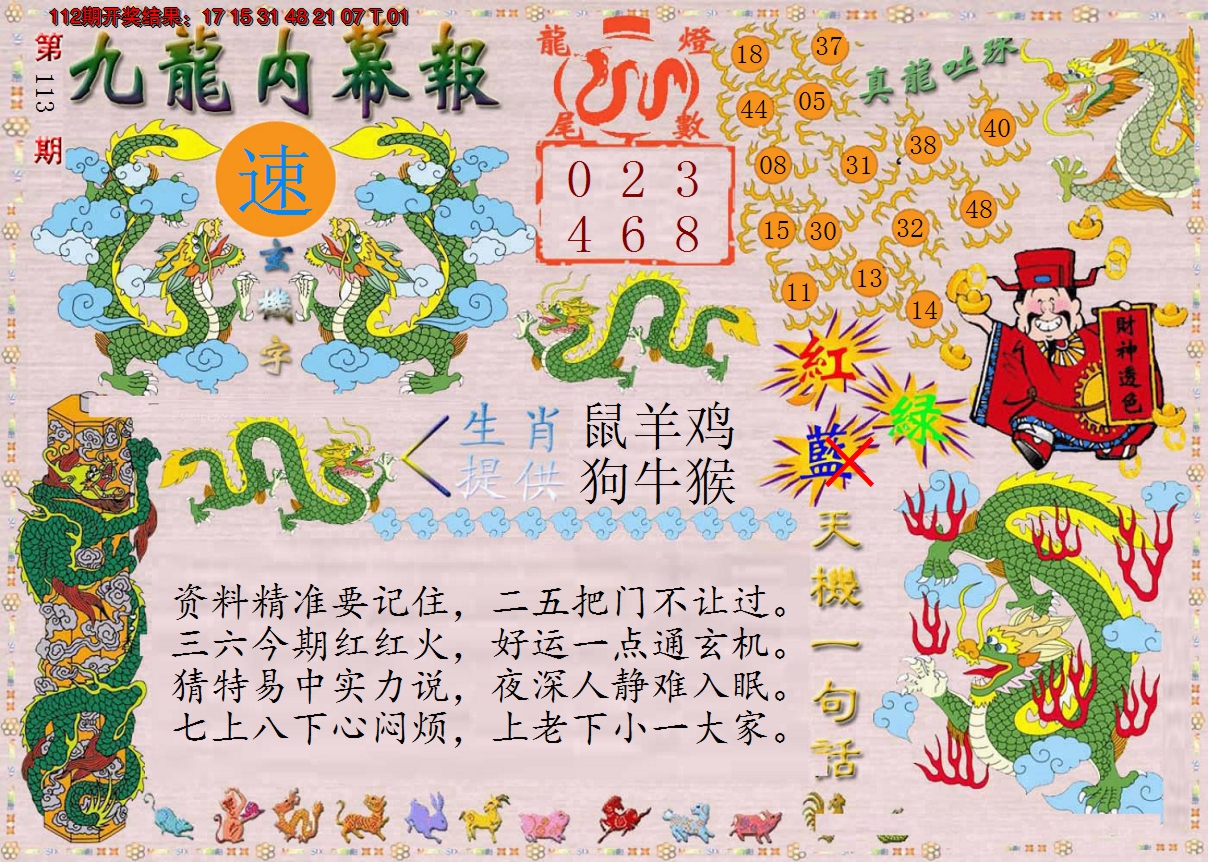 112期开奖结果：17 15 31 48 21 07 T 01
第113期
九龍内幕報
速
玄機字
龍燈
尾數
0 2 3
4 6 8
真龍吐珠
18 37
44 05
08 31 38 40
15 30 32 48
11 13 14
紅
綠
藍
財神透色
生肖
提供
鼠羊鸡
狗牛猴
天機一句话
资料精准要记住，二五把门不让过。
三六今期红红火，好运一点通玄机。
猜特易中实力说，夜深人静难入眠。
七上八下心闷烦，上老下小一大家。